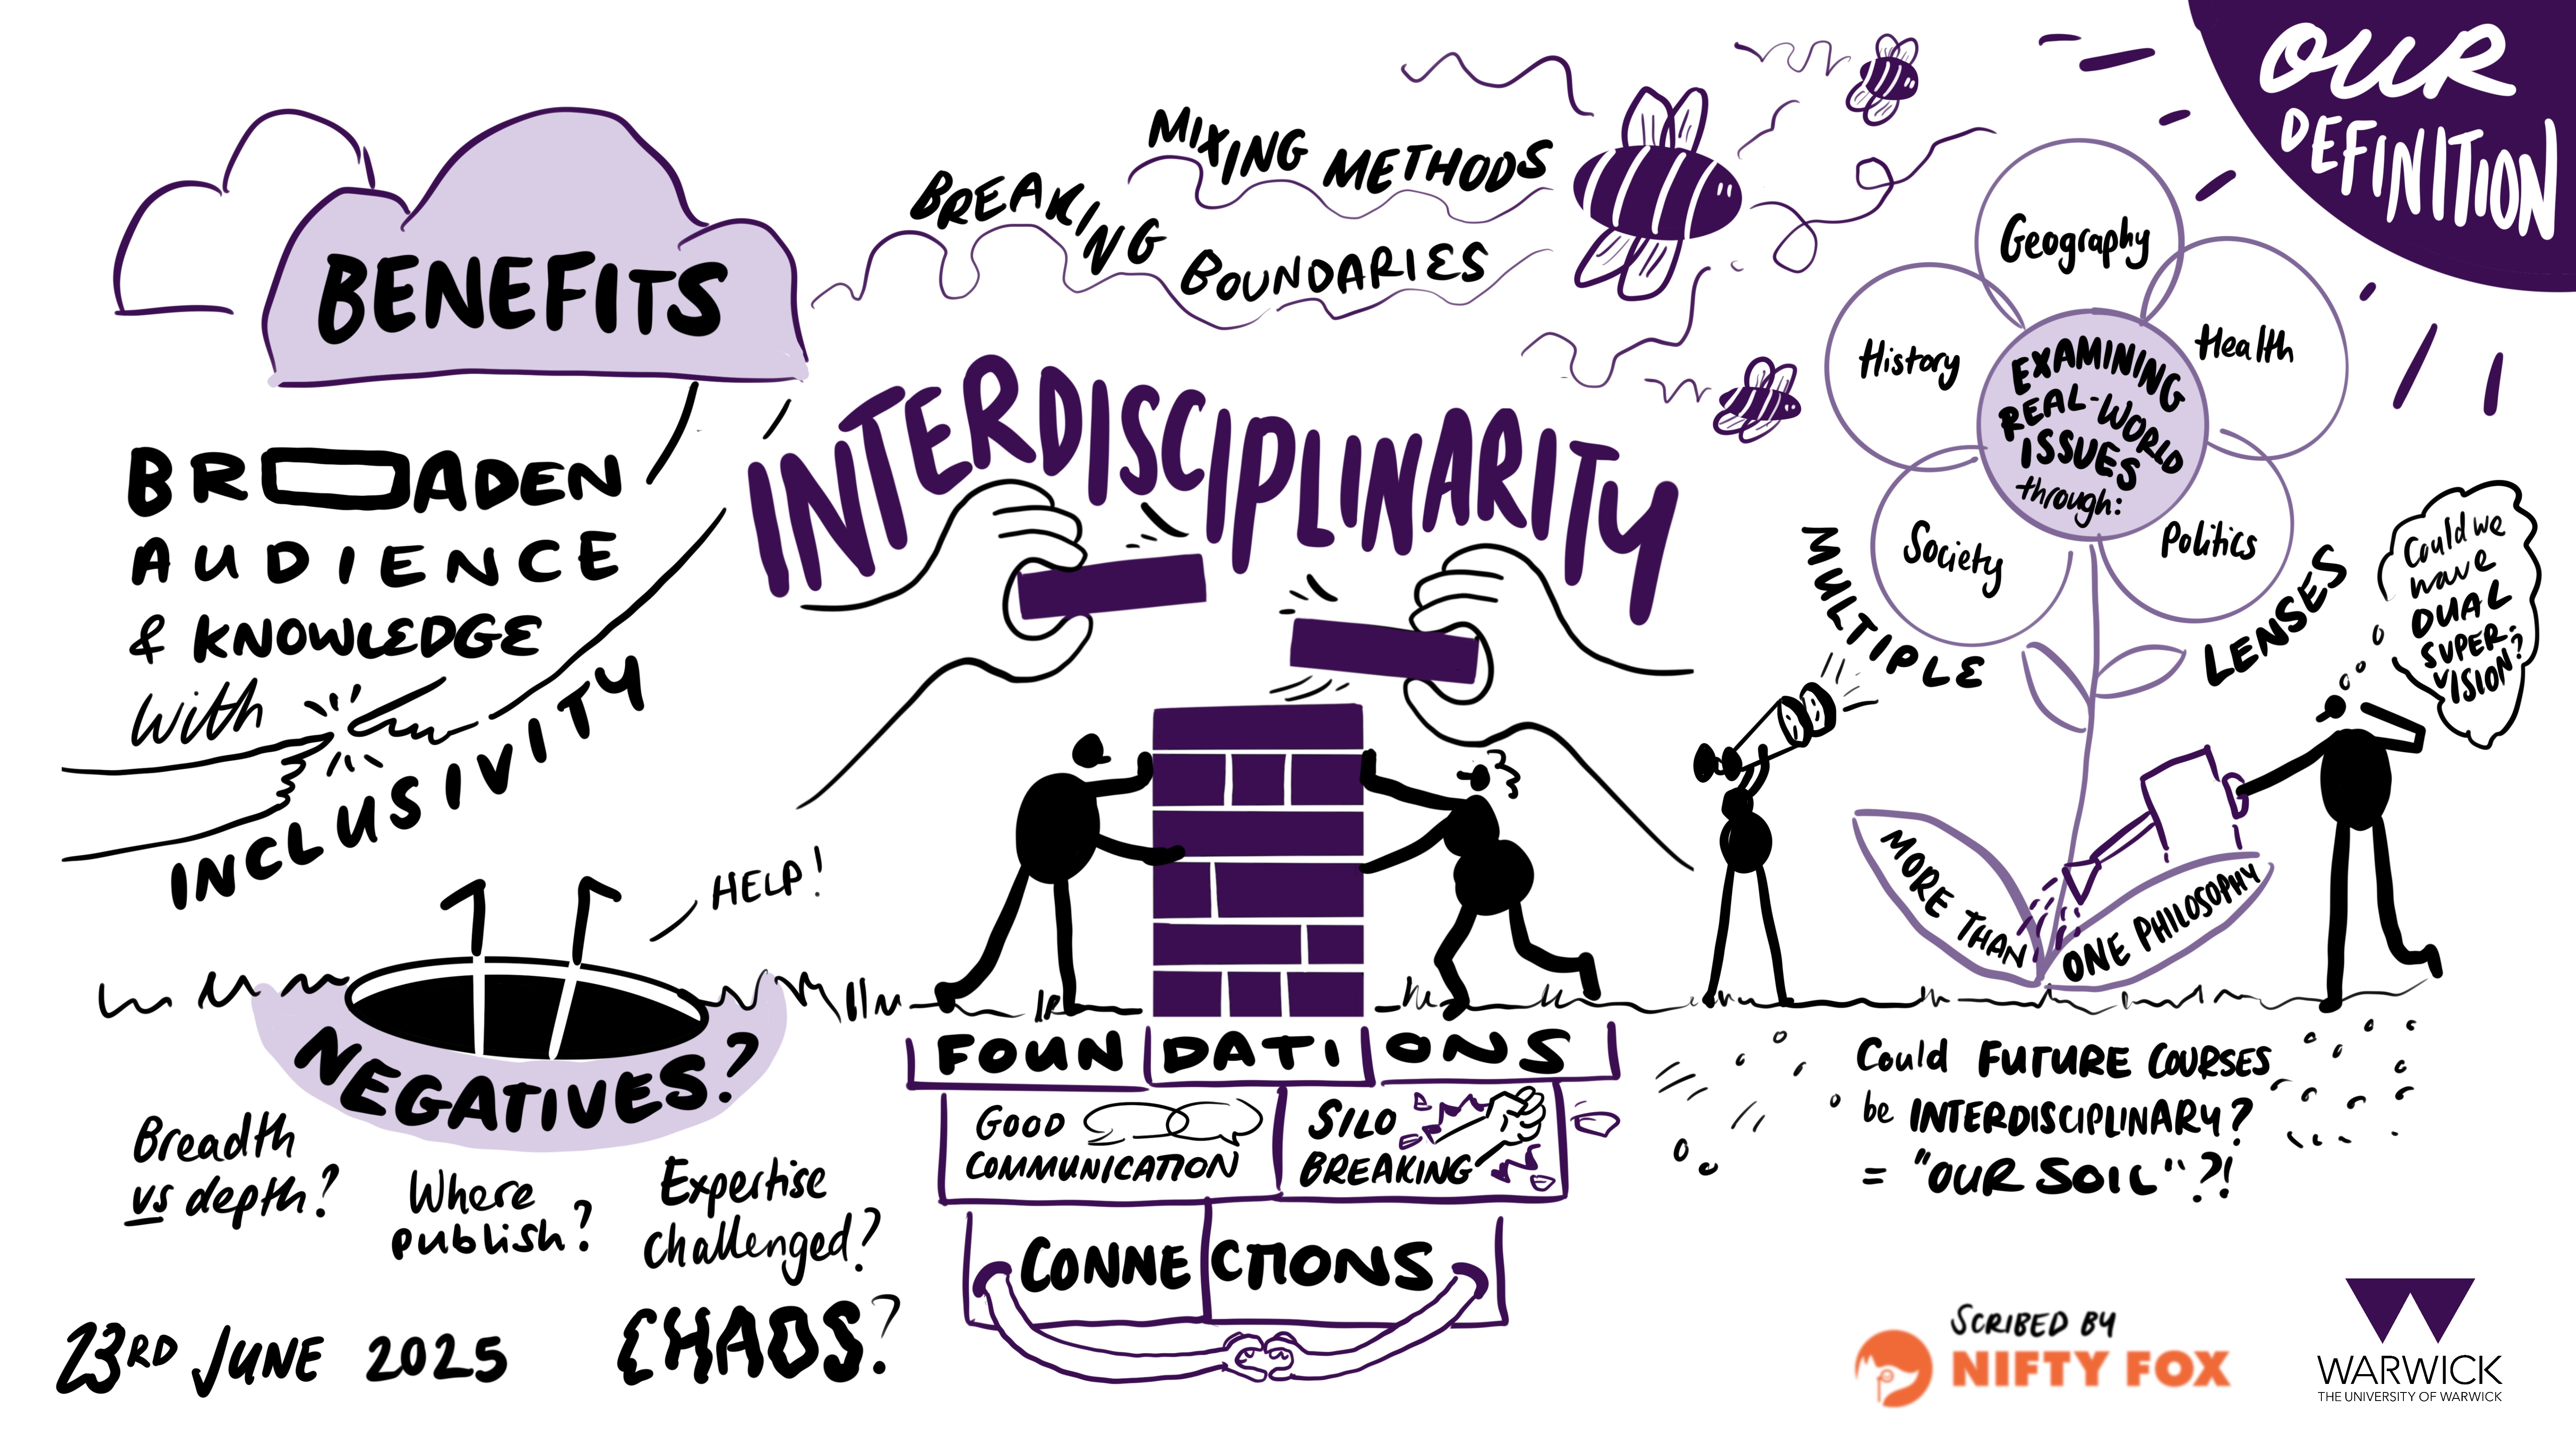 OUR
DEFINITION
BENEFITS
BROADEN
AUDIENCE
& KNOWLEDGE
with
INCLUSIVITY
MIXING METHODS
BREAKING BOUNDARIES
INTERDISCIPLINARITY
Geography
Health
Politics
Society
History
EXAMINING
REAL-WORLD
ISSUES
through:
MULTIPLE LENSES
Could we
have
DUAL
SUPER-
VISION?
MORE THAN
ONE PHILOSOPHY
HELP!
NEGATIVES?
Breadth
vs depth?
Where
publish?
Expertise
challenged?
CHAOS?
FOUNDATIONS
GOOD
COMMUNICATION
SILO
BREAKING
CONNECTIONS
Could FUTURE COURSES
be INTERDISCIPLINARY?
= "OUR SOIL"?!
23RD JUNE 2025
SCRIBED BY
NIFTY FOX
WARWICK
THE UNIVERSITY OF WARWICK